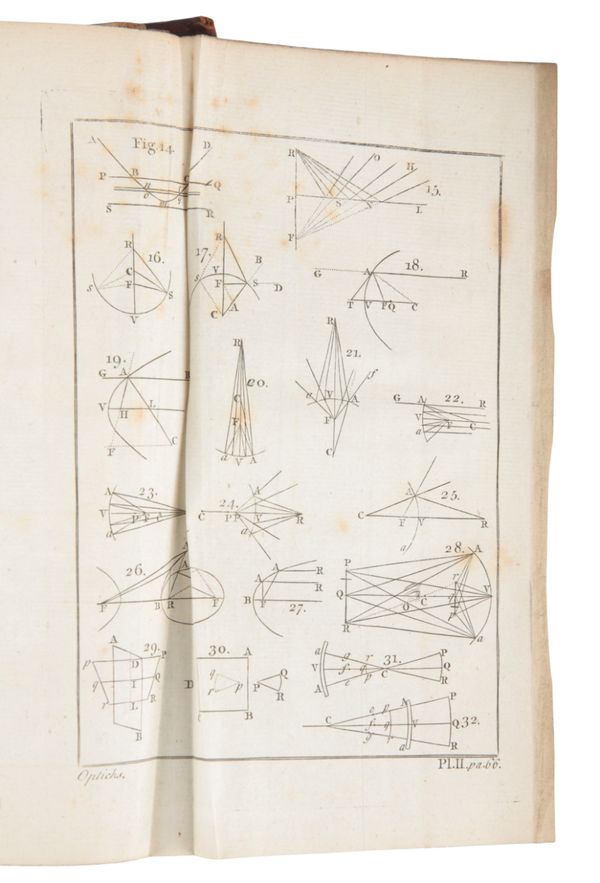 A Fig. 14. D
P B C Q
S m R
R O H
P S V L 15.
F
R 16.
C
s F S
V
17. R
V B
s F S D
C A
18.
G A R
T V F Q C
19.
G A R
V H L
F C
R 20.
C
F
a V A
R 21.
e V A f
F
C
G A 22. R
V F C
a
A 23.
V P F
a
A 24.
C P F V R
a
A 25.
C F V R
a
26. A
P B R F
A R
A R
B F 27.
28. A
P r
Q O C V
R a
A 29. P
p D
q I Q
r L R
B
30. A
D q Q
r p P R
B
a q r 31. P
V f C Q
A e p R
A P
C e p V Q 32.
f
g a R
Opticks.
Pl.II. pa. 66.